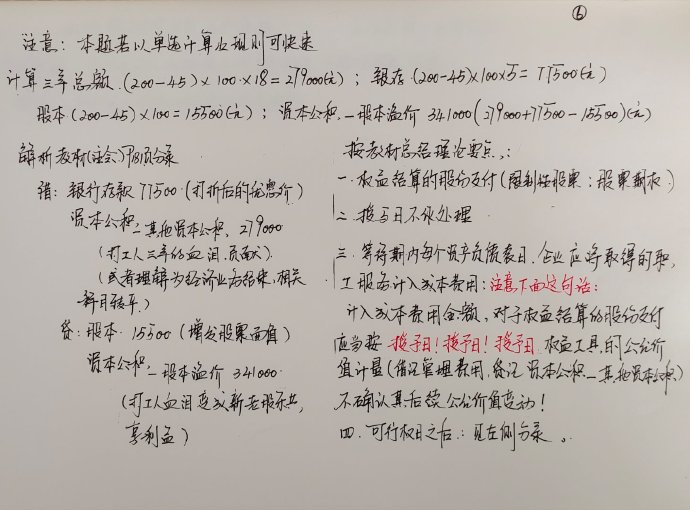 ⑥
注意：本题若以单选计算公规则可快速
计算三年总额.(200-45)×100×18=279000(元)；银存.(200-45)×100×5=77500(元)
股本(200-45)×100=15500(元)；资本公积.—股本溢价 341000(279000+77500-15500)(元)
解析教材(注会)P181页分录
借：银行存款 77500（打折后的优惠价）
资本公积—其他资本公积. 279000
（打工人三年的血泪.贡献）
（或者理解为经济业务结束,相关
科目转平.）
贷：股本. 15500（增发股票面值）
资本公积—股本溢价 341000.
（打工人血泪变成新老股东共,
享利益）
按教材总结理论要点：
一.权益结算的股份支付（限制性股票；股票期权）
二.授予日不做处理
三.等待期内每个资产负债表日.企业应将取得的职,
工服务计入成本费用：注意下面这句话：
计入成本费用金额.对于权益结算的股份支付
应当按 授予日！授予日！授予日.权益工具的公允价
值计量（借记管理费用.贷记 资本公积—其他资本公积）
不确认其后续公允价值变动！
四.可行权日之后：见左侧分录。